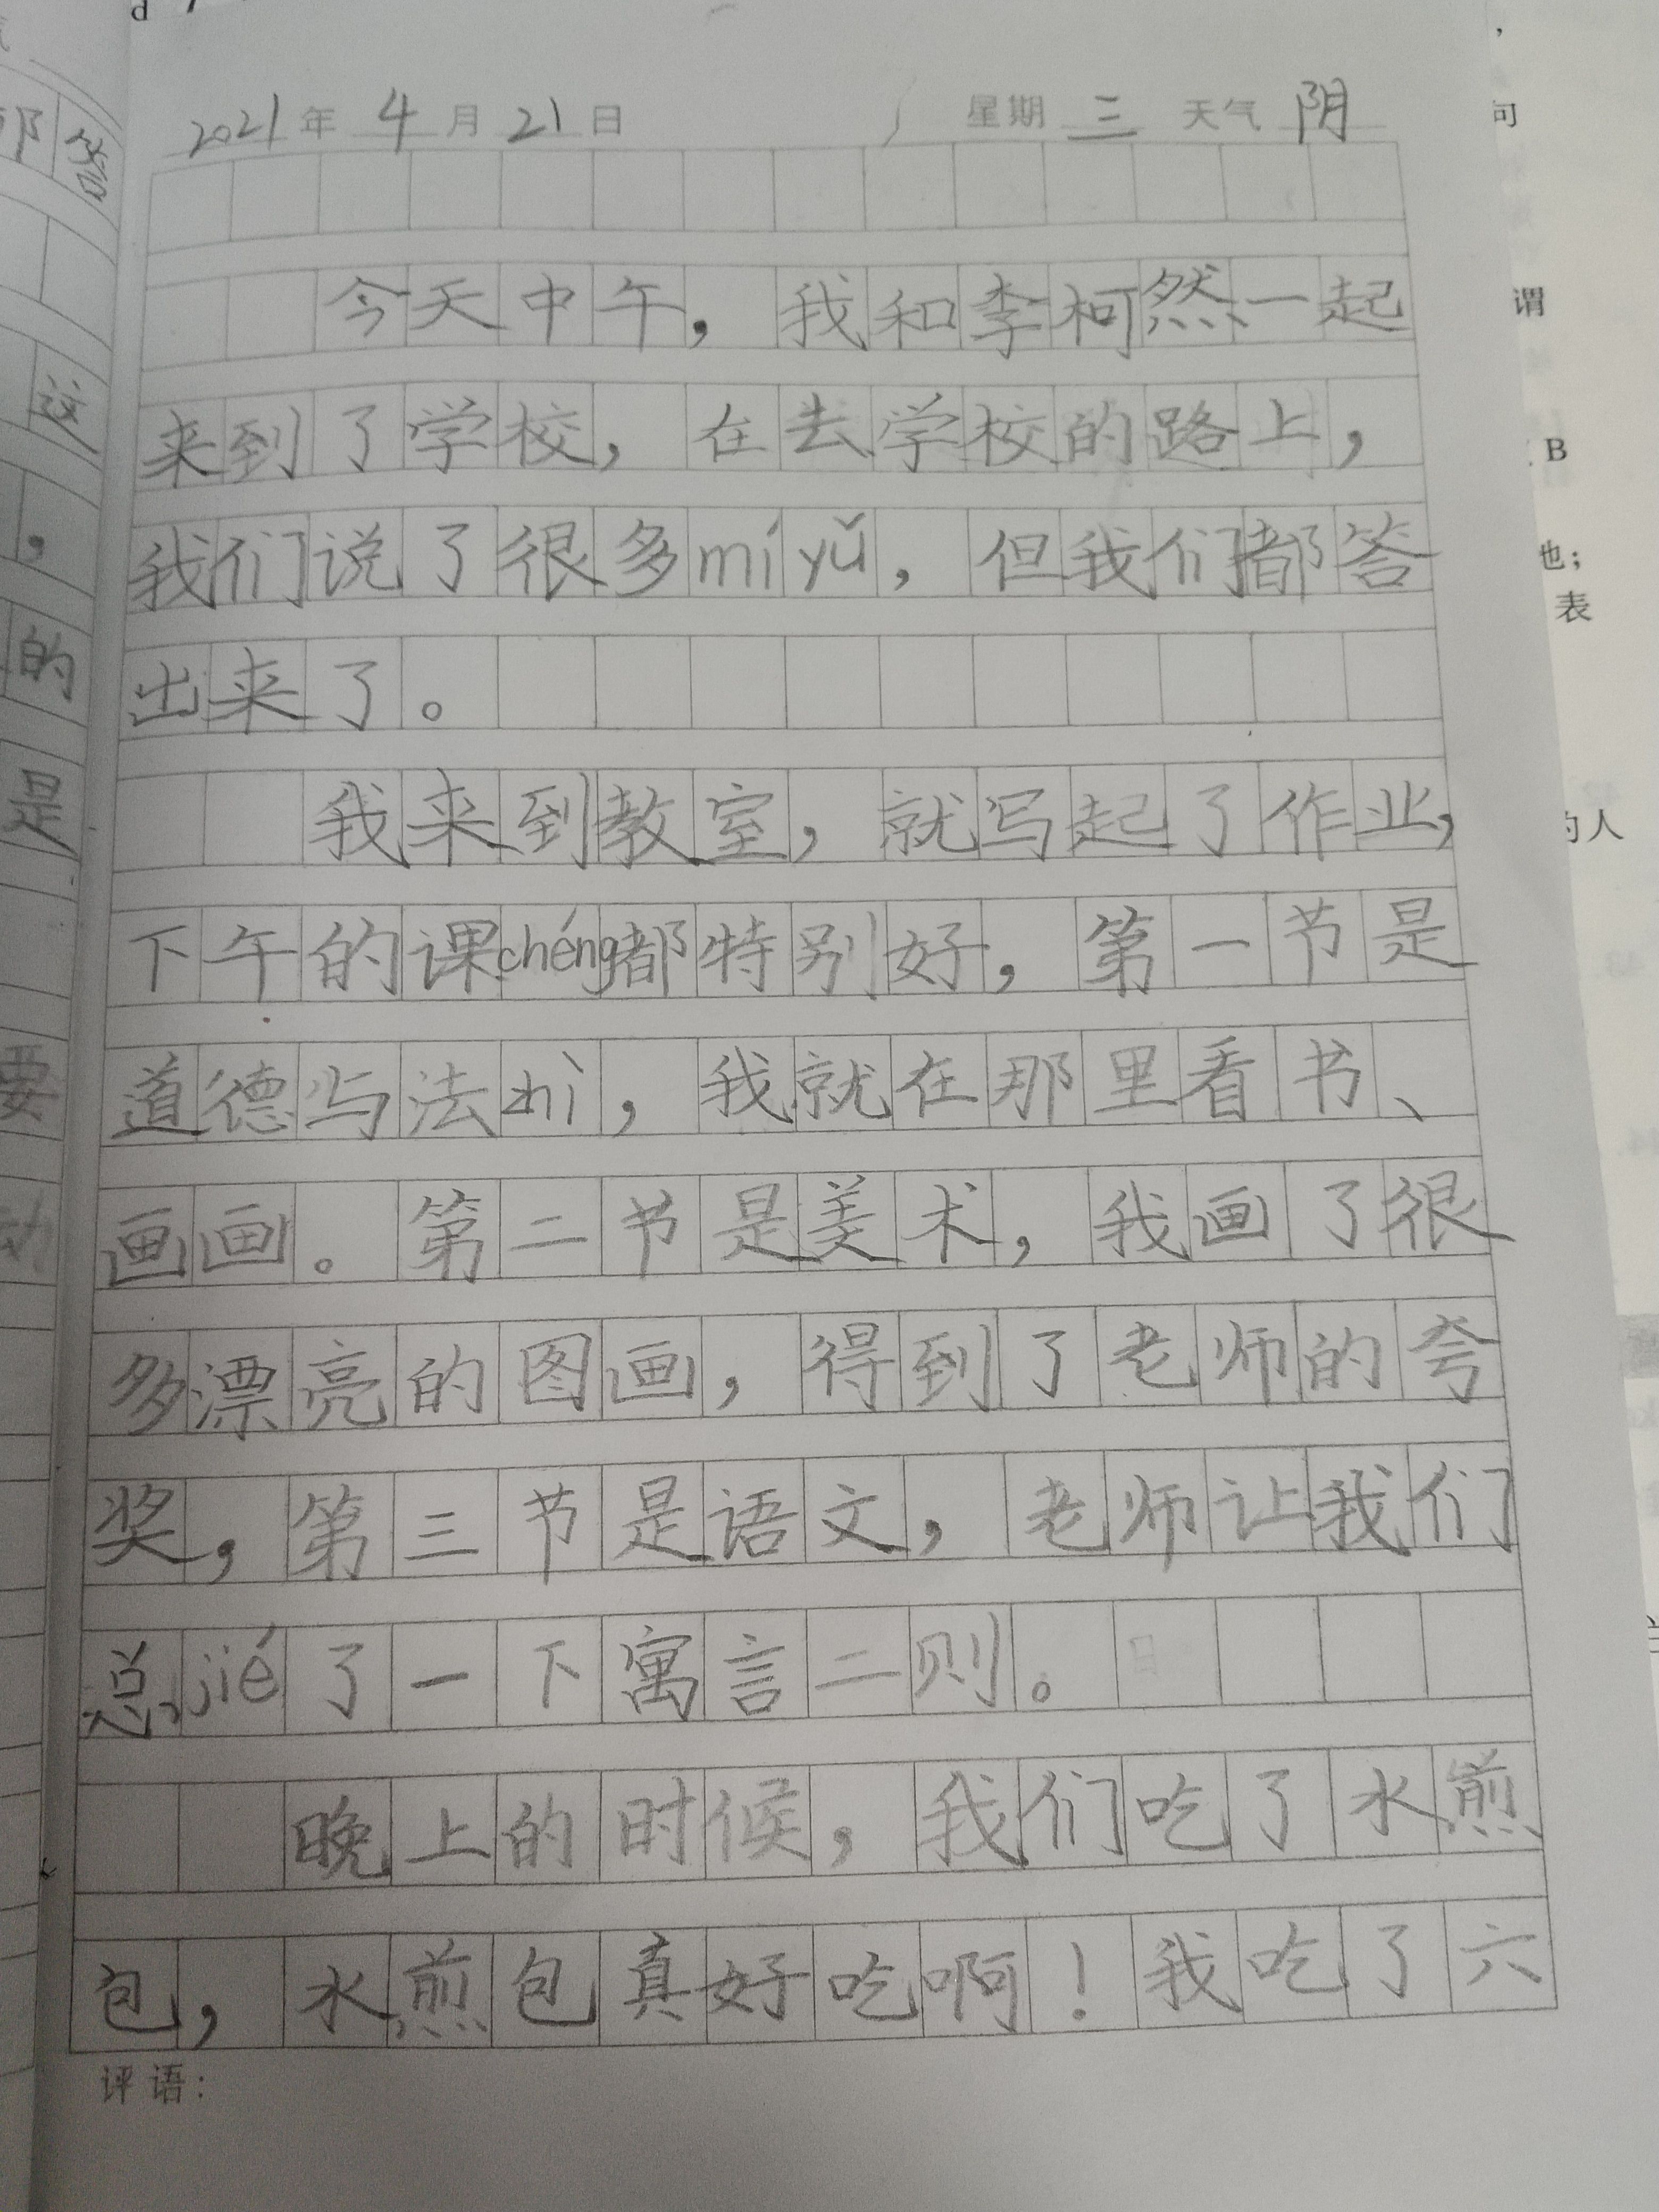 2021年 4月 21日 星期 三 天气 阴
今天中午，我和李柯然一起
来到了学校，在去学校的路上，
我们说了很多mí yǔ，但我们都答
出来了。
我来到教室，就写起了作业，
下午的课chéng都特别好，第一节是
道德与法zhì，我就在那里看书、
画画。第二节是美术，我画了很
多漂亮的图画，得到了老师的夸
奖，第三节是语文，老师让我们
总jié了一下寓言二则。
晚上的时候，我们吃了水煎
包，水煎包真好吃啊！我吃了六
评语：
的
是
要
句
谓
B
也；
表
的人